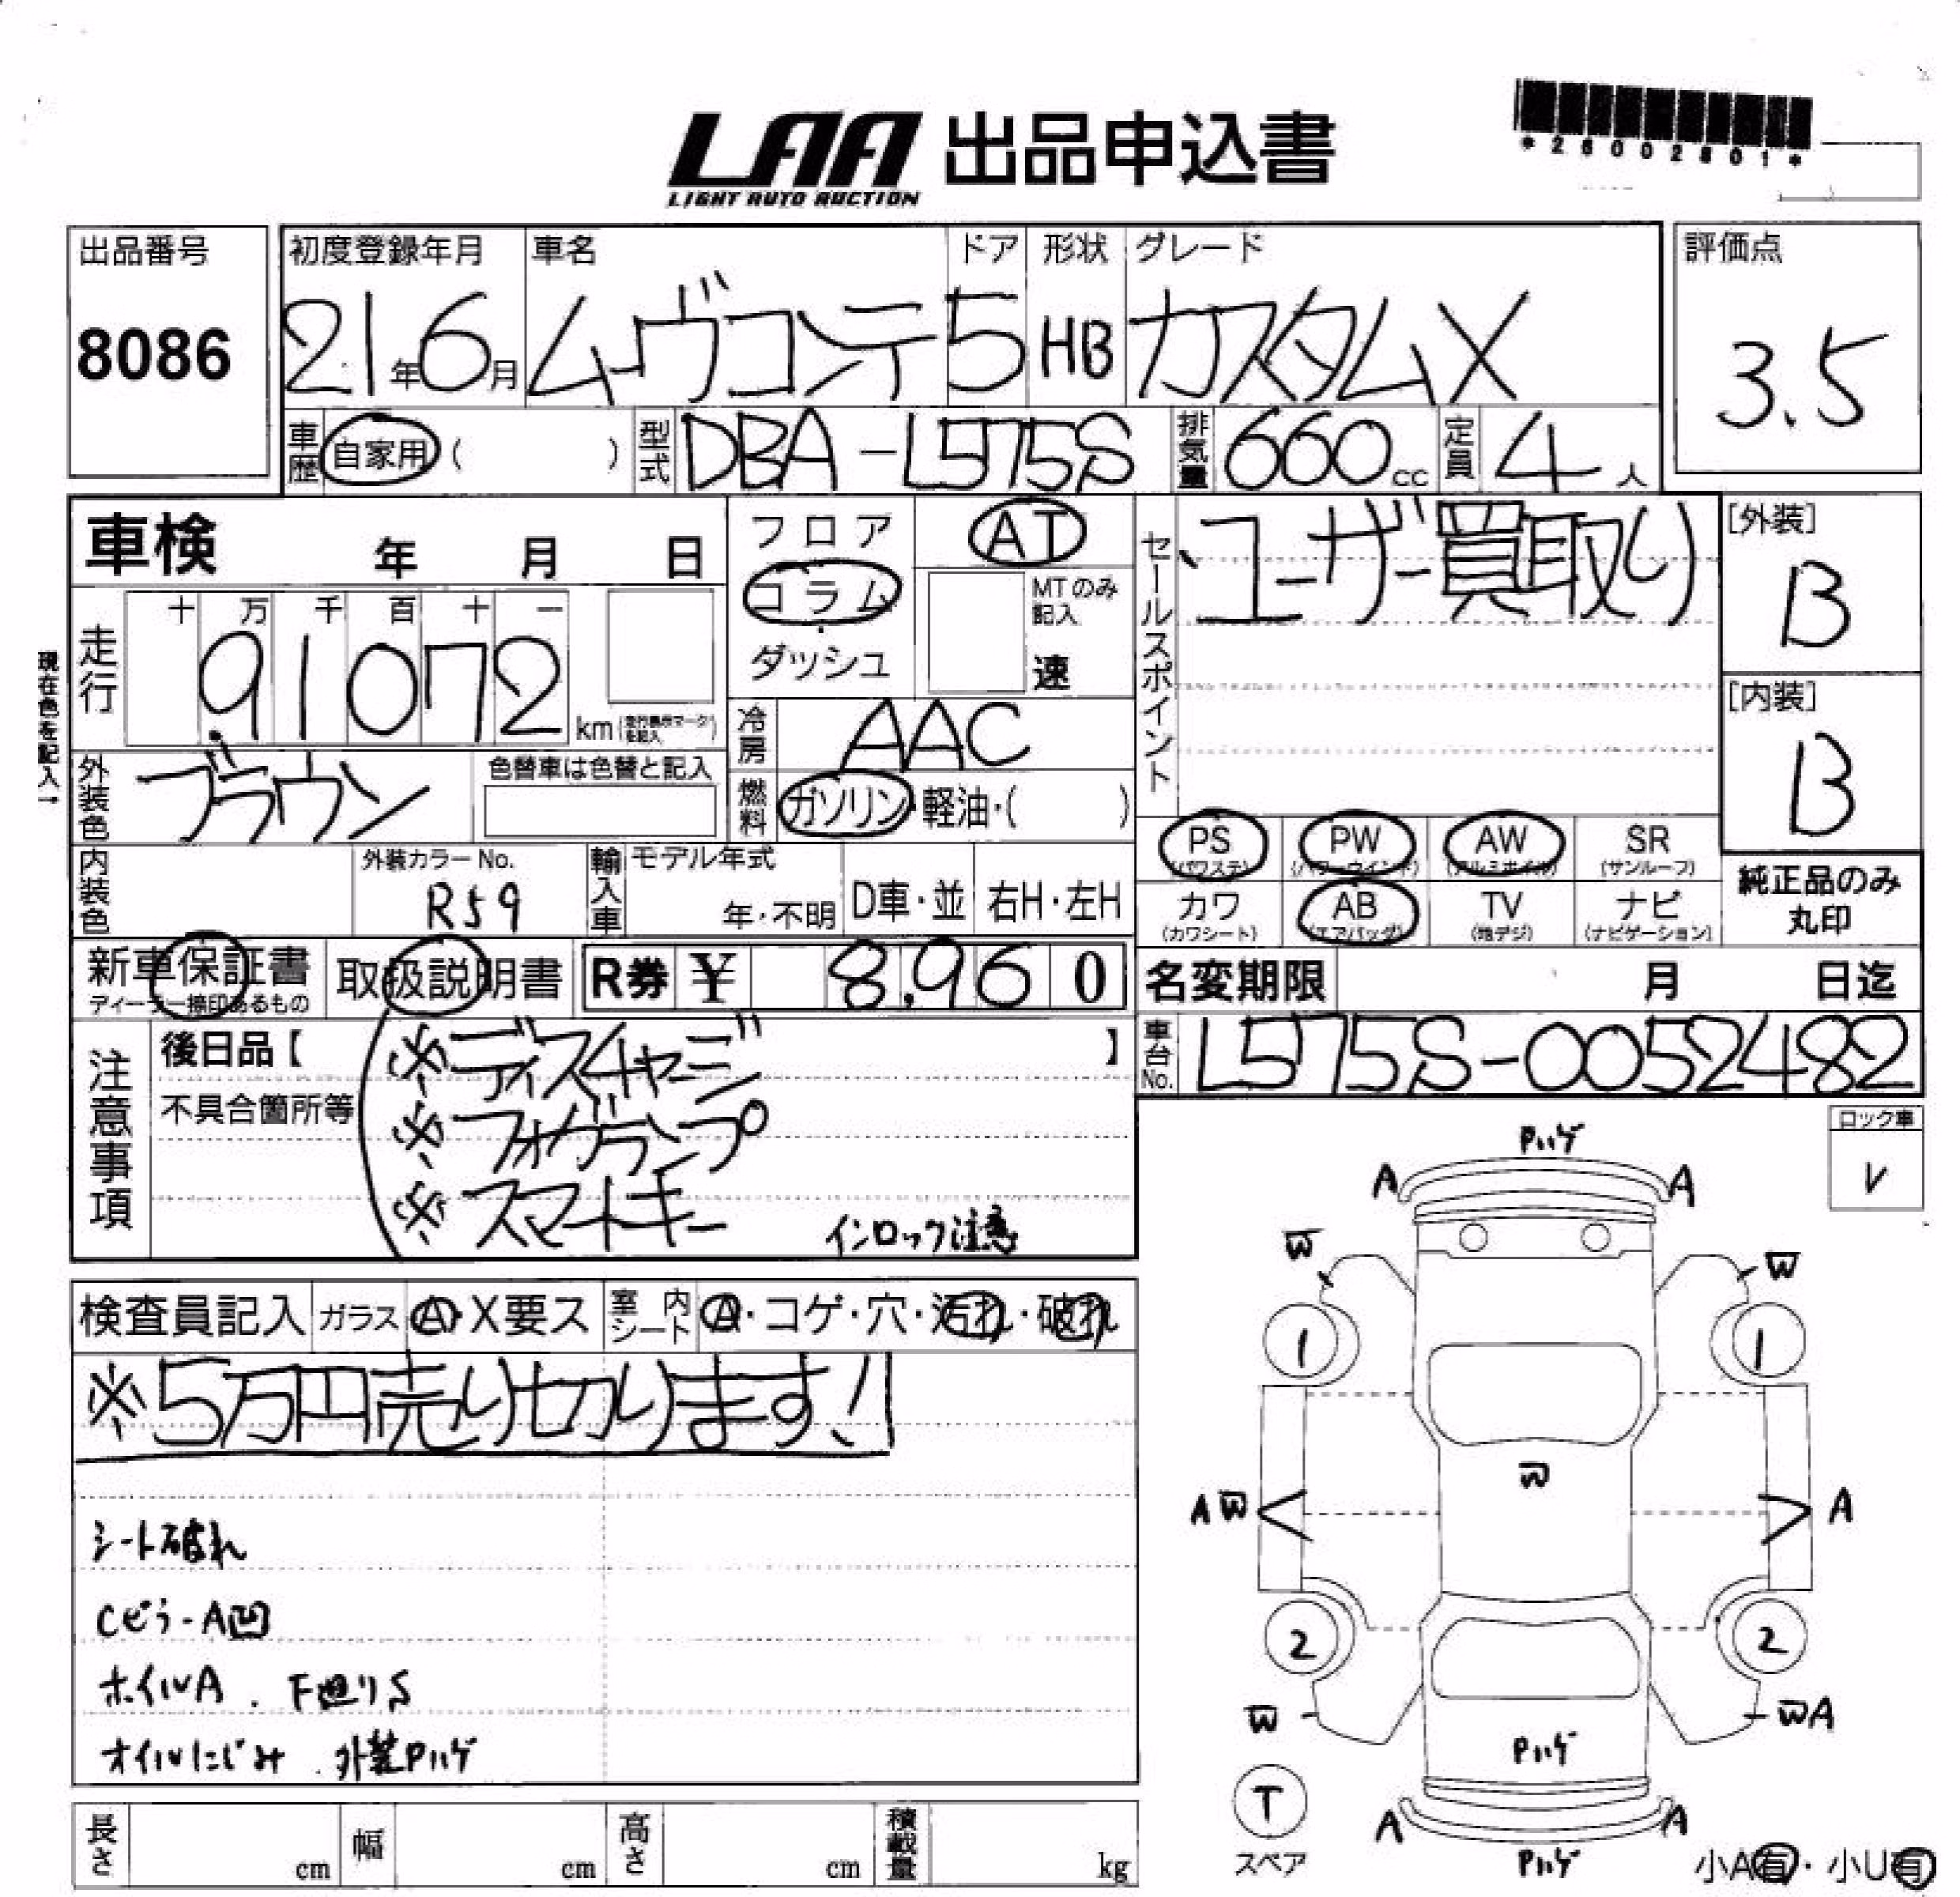 LAA 出品申込書
LIGHT AUTO AUCTION
*26002801*
出品番号 初度登録年月 車名 ドア 形状 グレード 評価点
8086 21年6月 ムーヴコンテ 5 HB カスタムX 3.5
車歴 自家用( ) 型式 DBA-L575S 排気量 660cc 定員 4人
車検 年 月 日
フロア AT
コラム
ダッシュ
MTのみ記入
速
セールスポイント
ユーザー買取り
[外装]
B
[内装]
B
走行 十 万 千 百 十 一
91072 km(走行表示マークを記入)
現在色を記入→
冷房 AAC
外装色 ブラウン 色替車は色替と記入
燃料 ガソリン・軽油・( )
内装色 外装カラーNo. R59
輸入車 モデル年式 年・不明 D車・並 右H・左H
PS (パワステ) PW (パワーウインド) AW (アルミホイル) SR (サンルーフ)
カワ (カワシート) AB (エアバッグ) TV (地デジ) ナビ (ナビゲーション)
純正品のみ
丸印
新車保証書 取扱説明書 R券 ¥ 8,960
ディーラー捺印あるもの
名変期限 月 日迄
車台No. L575S-0052482
注意事項
後日品【 】
不具合箇所等
※ディスチャージ
※フォグランプ
※スマートキー
インロック注意
ロック車
レ
検査員記入 ガラス A・X要ス 室内シート A・コゲ・穴・汚れ・破れ
※5万円売り切ります!
シート破れ
Cピラ-A凹
ホイルA . F廻りS
オイルにじみ . 外装Pハゲ
Pハゲ
A A
W W
1 1
W
AW A
2 2
W WA
Pハゲ
T
スペア
A A
Pハゲ
小A有・小U有
長さ cm 幅 cm 高さ cm 積載量 kg